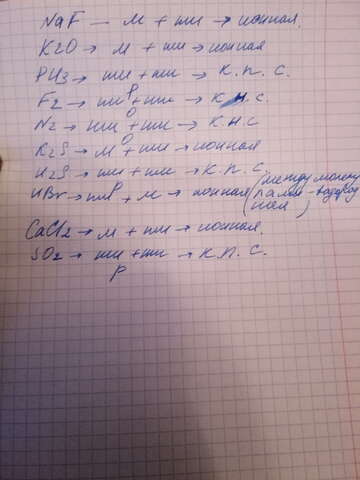 NaF — м + нм → ионная.
K2O → м + нм → ионная
PH3 → нм + нм → к.п.с.
F2 → нм + нм → к н.с.
N2 → нм + нм → к н.с
K2S → м + нм → ионная
H2S → нм + нм → к.п.с.
HBr → нм + м → ионная (между молеку
лами - водород
ная)
CaCl2 → м + нм → ионная
SO2 → нм + нм → к.п.с.
р